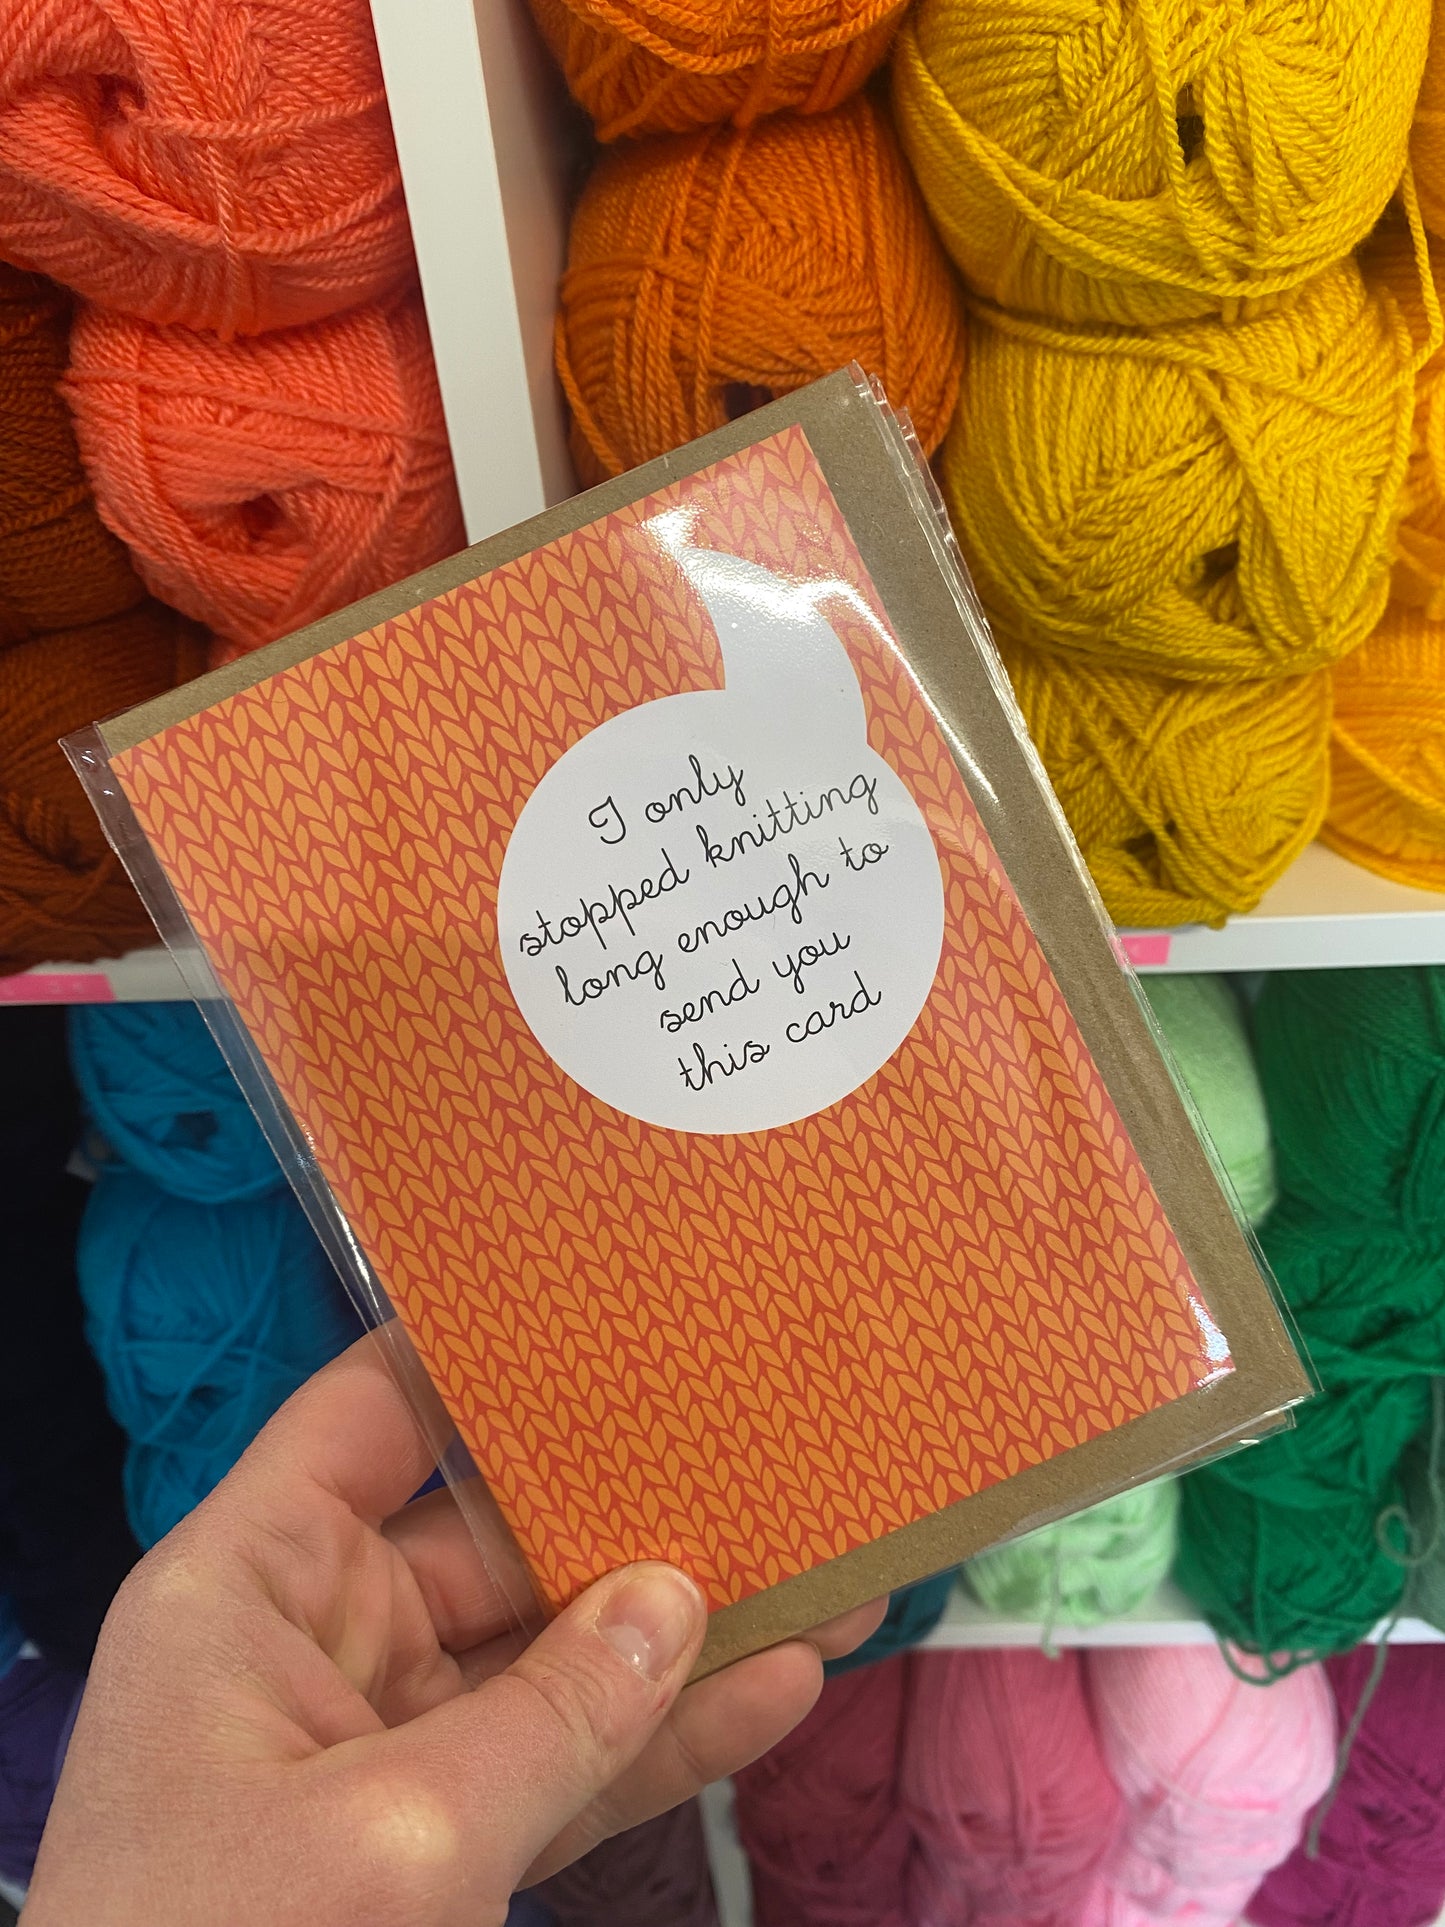 I only
stopped knitting
long enough to
send you
this card